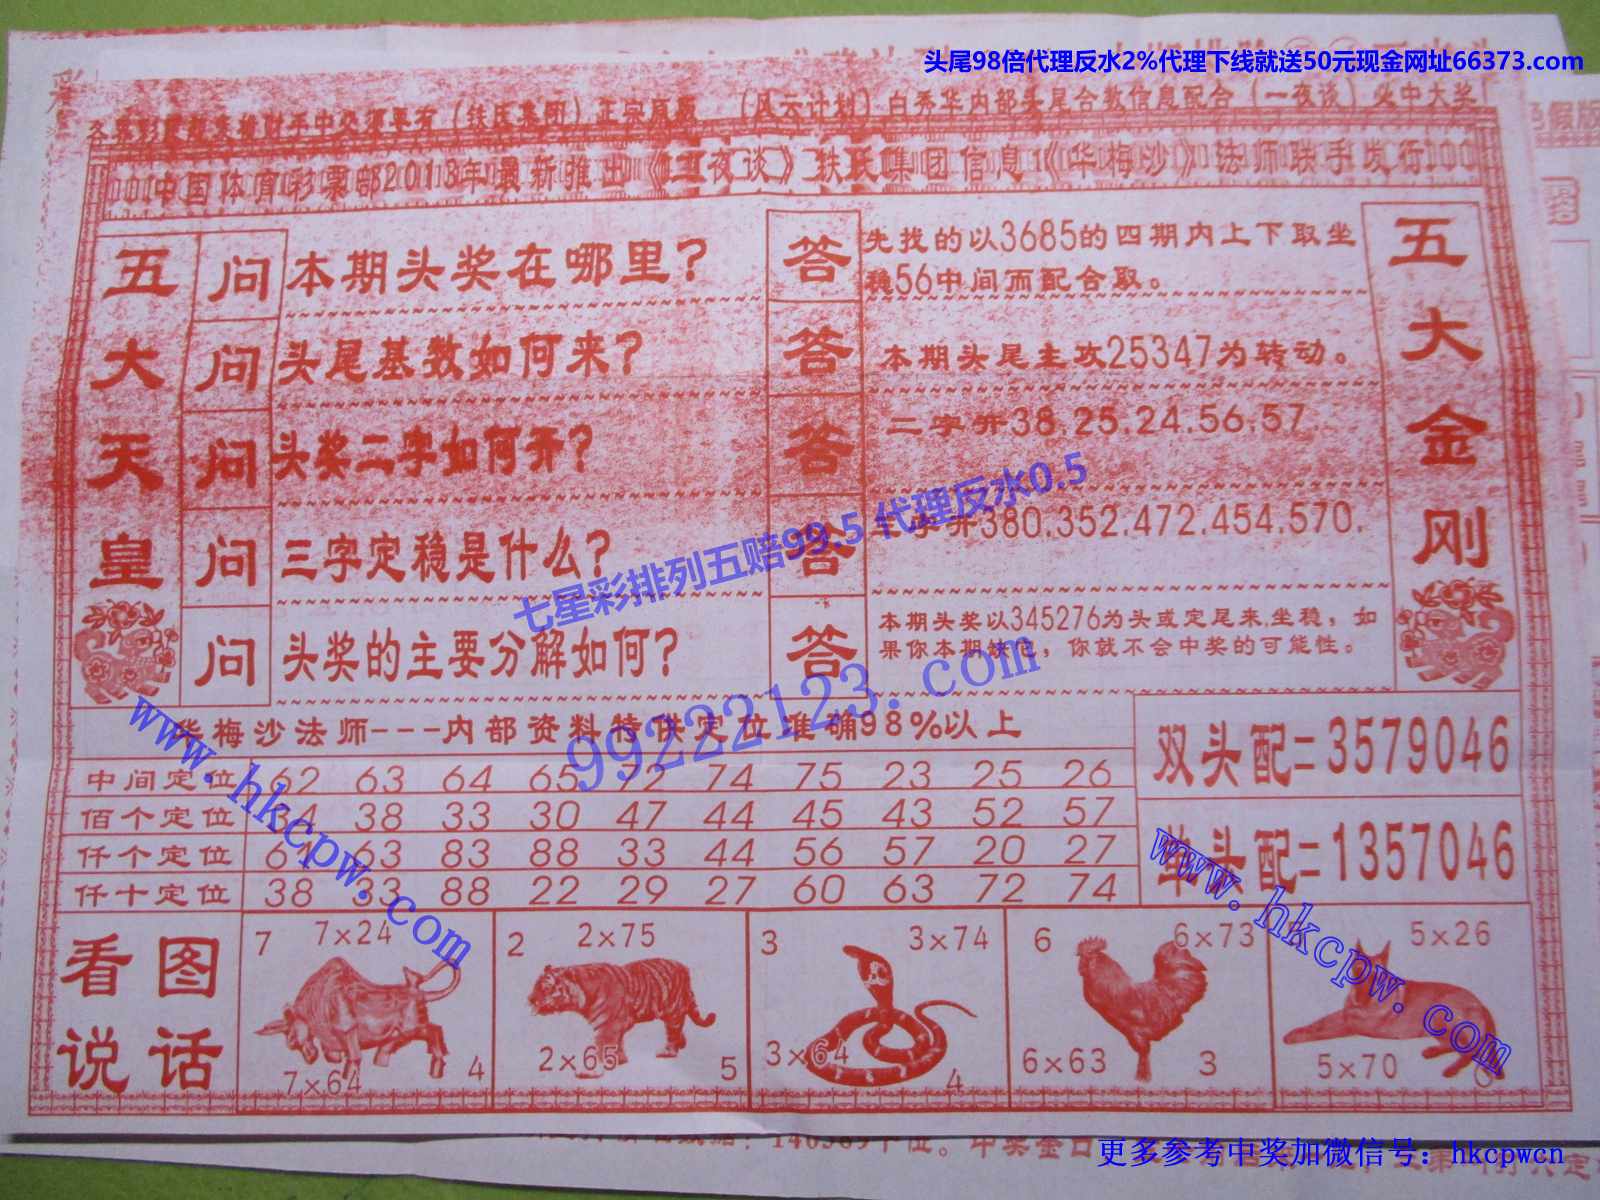 头尾98倍代理反水2%代理下线就送50元现金网址66373.com
(铁医集团)正宗原版 (风云计划)白秀华内部头尾合数信息配合(一夜谈)必中大奖
中国体育彩票部2013年最新推出《一夜谈》铁医集团信息《华梅沙》法师联手发行
五大天皇
问 本期头奖在哪里?
答 先找的以3685的四期内上下取坐
稳56中间而配合取。
问 头尾基数如何来?
答 本期头尾主攻25347为转动。
问 头奖二字如何开?
答 二字开38.25.24.56.57
问 三字定稳是什么?
答 字开380.352.472.454.570
问 头奖的主要分解如何?
答 本期头奖以345276为头或定尾来.坐稳,如
果你本期缺它,你就不会中奖的可能性。
五大金刚
七星彩排列五赔99.5 代理反水0.5
99222123.com
www.hkcpw.com
华梅沙法师---内部资料特供定位准确98%以上
中间定位 62 63 64 65 72 74 75 23 25 26
佰个定位 34 38 33 30 47 44 45 43 52 57
仟个定位 61 63 83 88 33 44 56 57 20 27
仟十定位 38 33 88 22 29 27 60 63 72 74
双头配二3579046
单头配二1357046
www.hkcpw.com
看图
说话
7 7×24
7×64 4
2 2×75
2×65 5
3 3×74
3×64 4
6 6×73
6×63 3
5×26
5×70
更多参考中奖加微信号：hkcpwcn